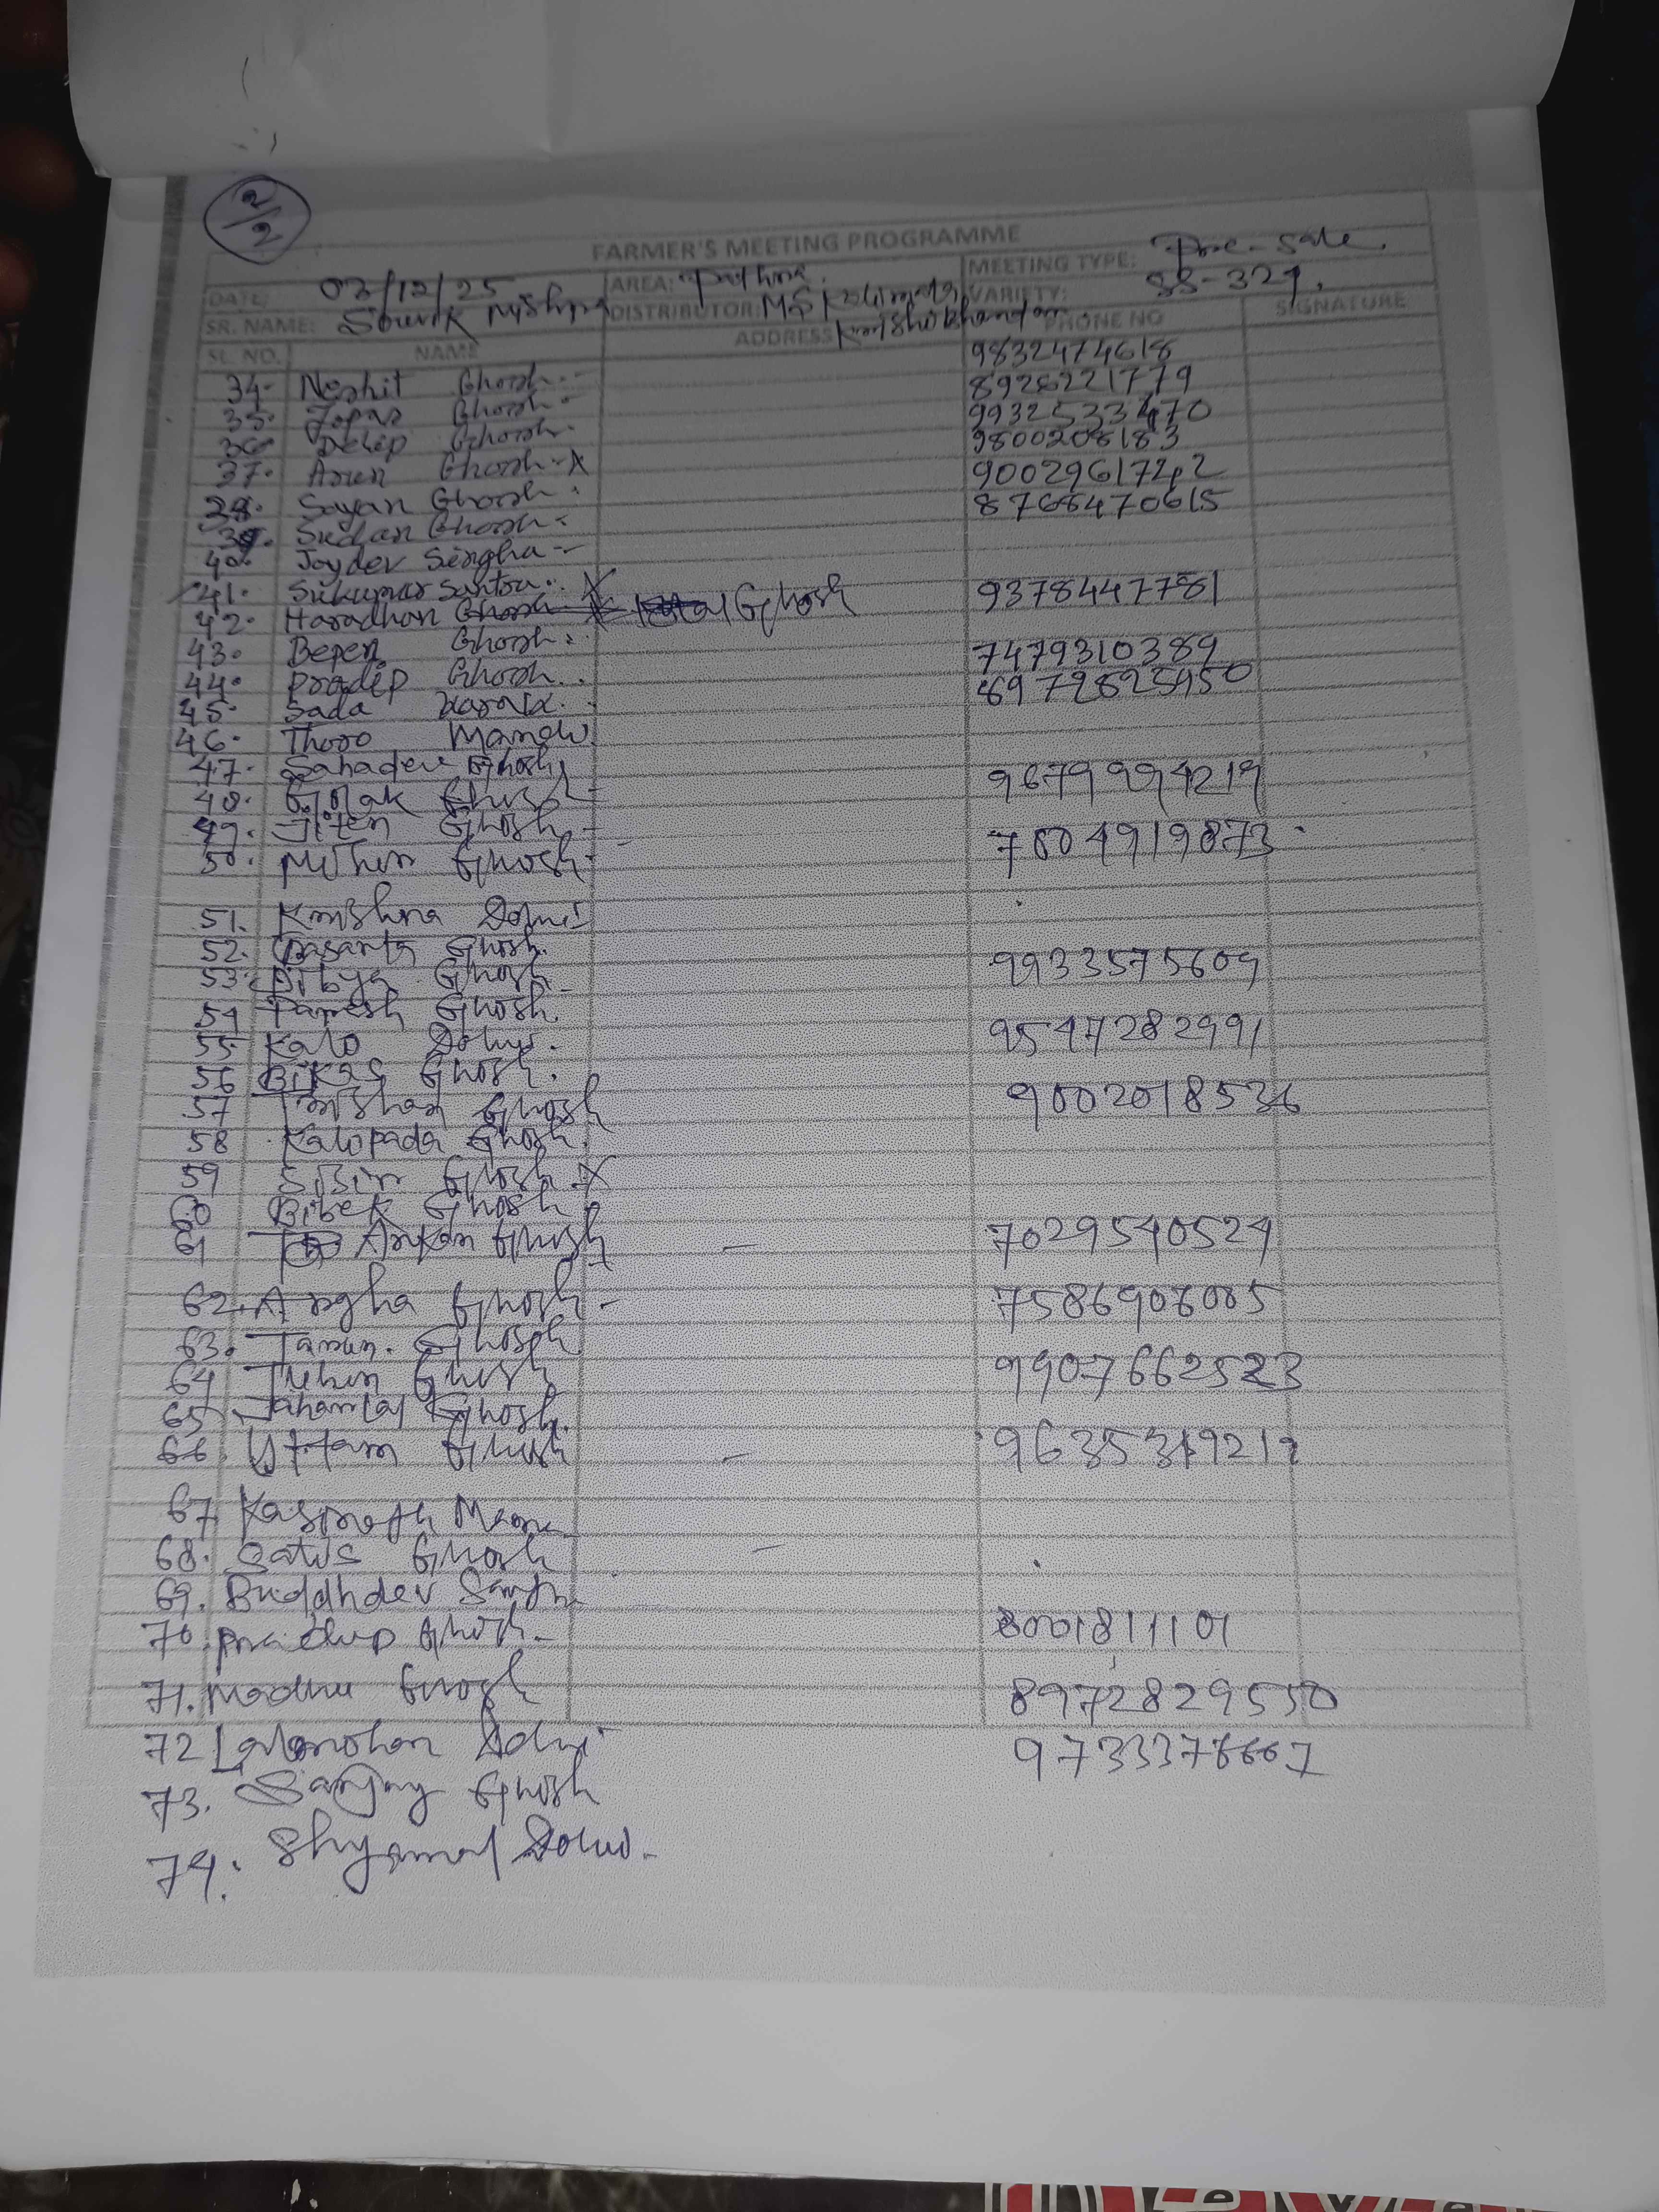 2/2
FARMER'S MEETING PROGRAMME
DATE: 03/12/25 AREA: MEETING TYPE: Pre-Sale.
SR. NAME: Souvik Mishra DISTRIBUTOR: MS Kalimata Krrishi Bhandar VARIETY: SS-329,
SL. NO. NAME ADDRESS PHONE NO SIGNATURE
9832474618
34. Neshit Ghosh 8926221779
35. Ghosh 9932533470
36. Delip Ghosh 9800208183
37. Arun Ghosh x 9002961742
38. Sayan Ghosh 8768470615
39. Sudan Ghosh
40. Joydev Singha
41. Sukumar Santra x
42. Haradhan Ghosh Ghosh 9378447781
43. Bepen Ghosh
44. Pradip Ghosh 7479310389
45. Sada 8979825950
46. Thoro
47. Sahadev Ghosh
48. Golak Ghosh 9679994219
49. Jiten Ghosh
50. Mithun Ghosh 7804919873
51. Krrishna Dolui
52. Basanta Ghosh
53. Dibya Ghosh 9933575609
54 Paresh Ghosh.
55 Kalo Dolui. 9547282991
56 Bikas Ghosh.
57 Ghosh 9002018536
58 Kalopada Ghosh.
59 Sisir Ghosh x
60 Bibek Ghosh
61 Ankan Ghosh - 7029540524
62. Argha Ghosh - 7586908005
63. Tarun. Ghosh
64 Tuhin Ghosh 9907662523
65 Jaharlal Ghosh.
66 Uttam Ghosh - 9635319219
67. Kasinath
68. Satis Ghosh -
69. Buddhdev
70. Pradip Ghosh - 8001811101
71. Madhu Ghosh 8972829550
72 Lalmohan Dolui 9733376667
73. Sanjay Ghosh
74. Shyamal Dolui.